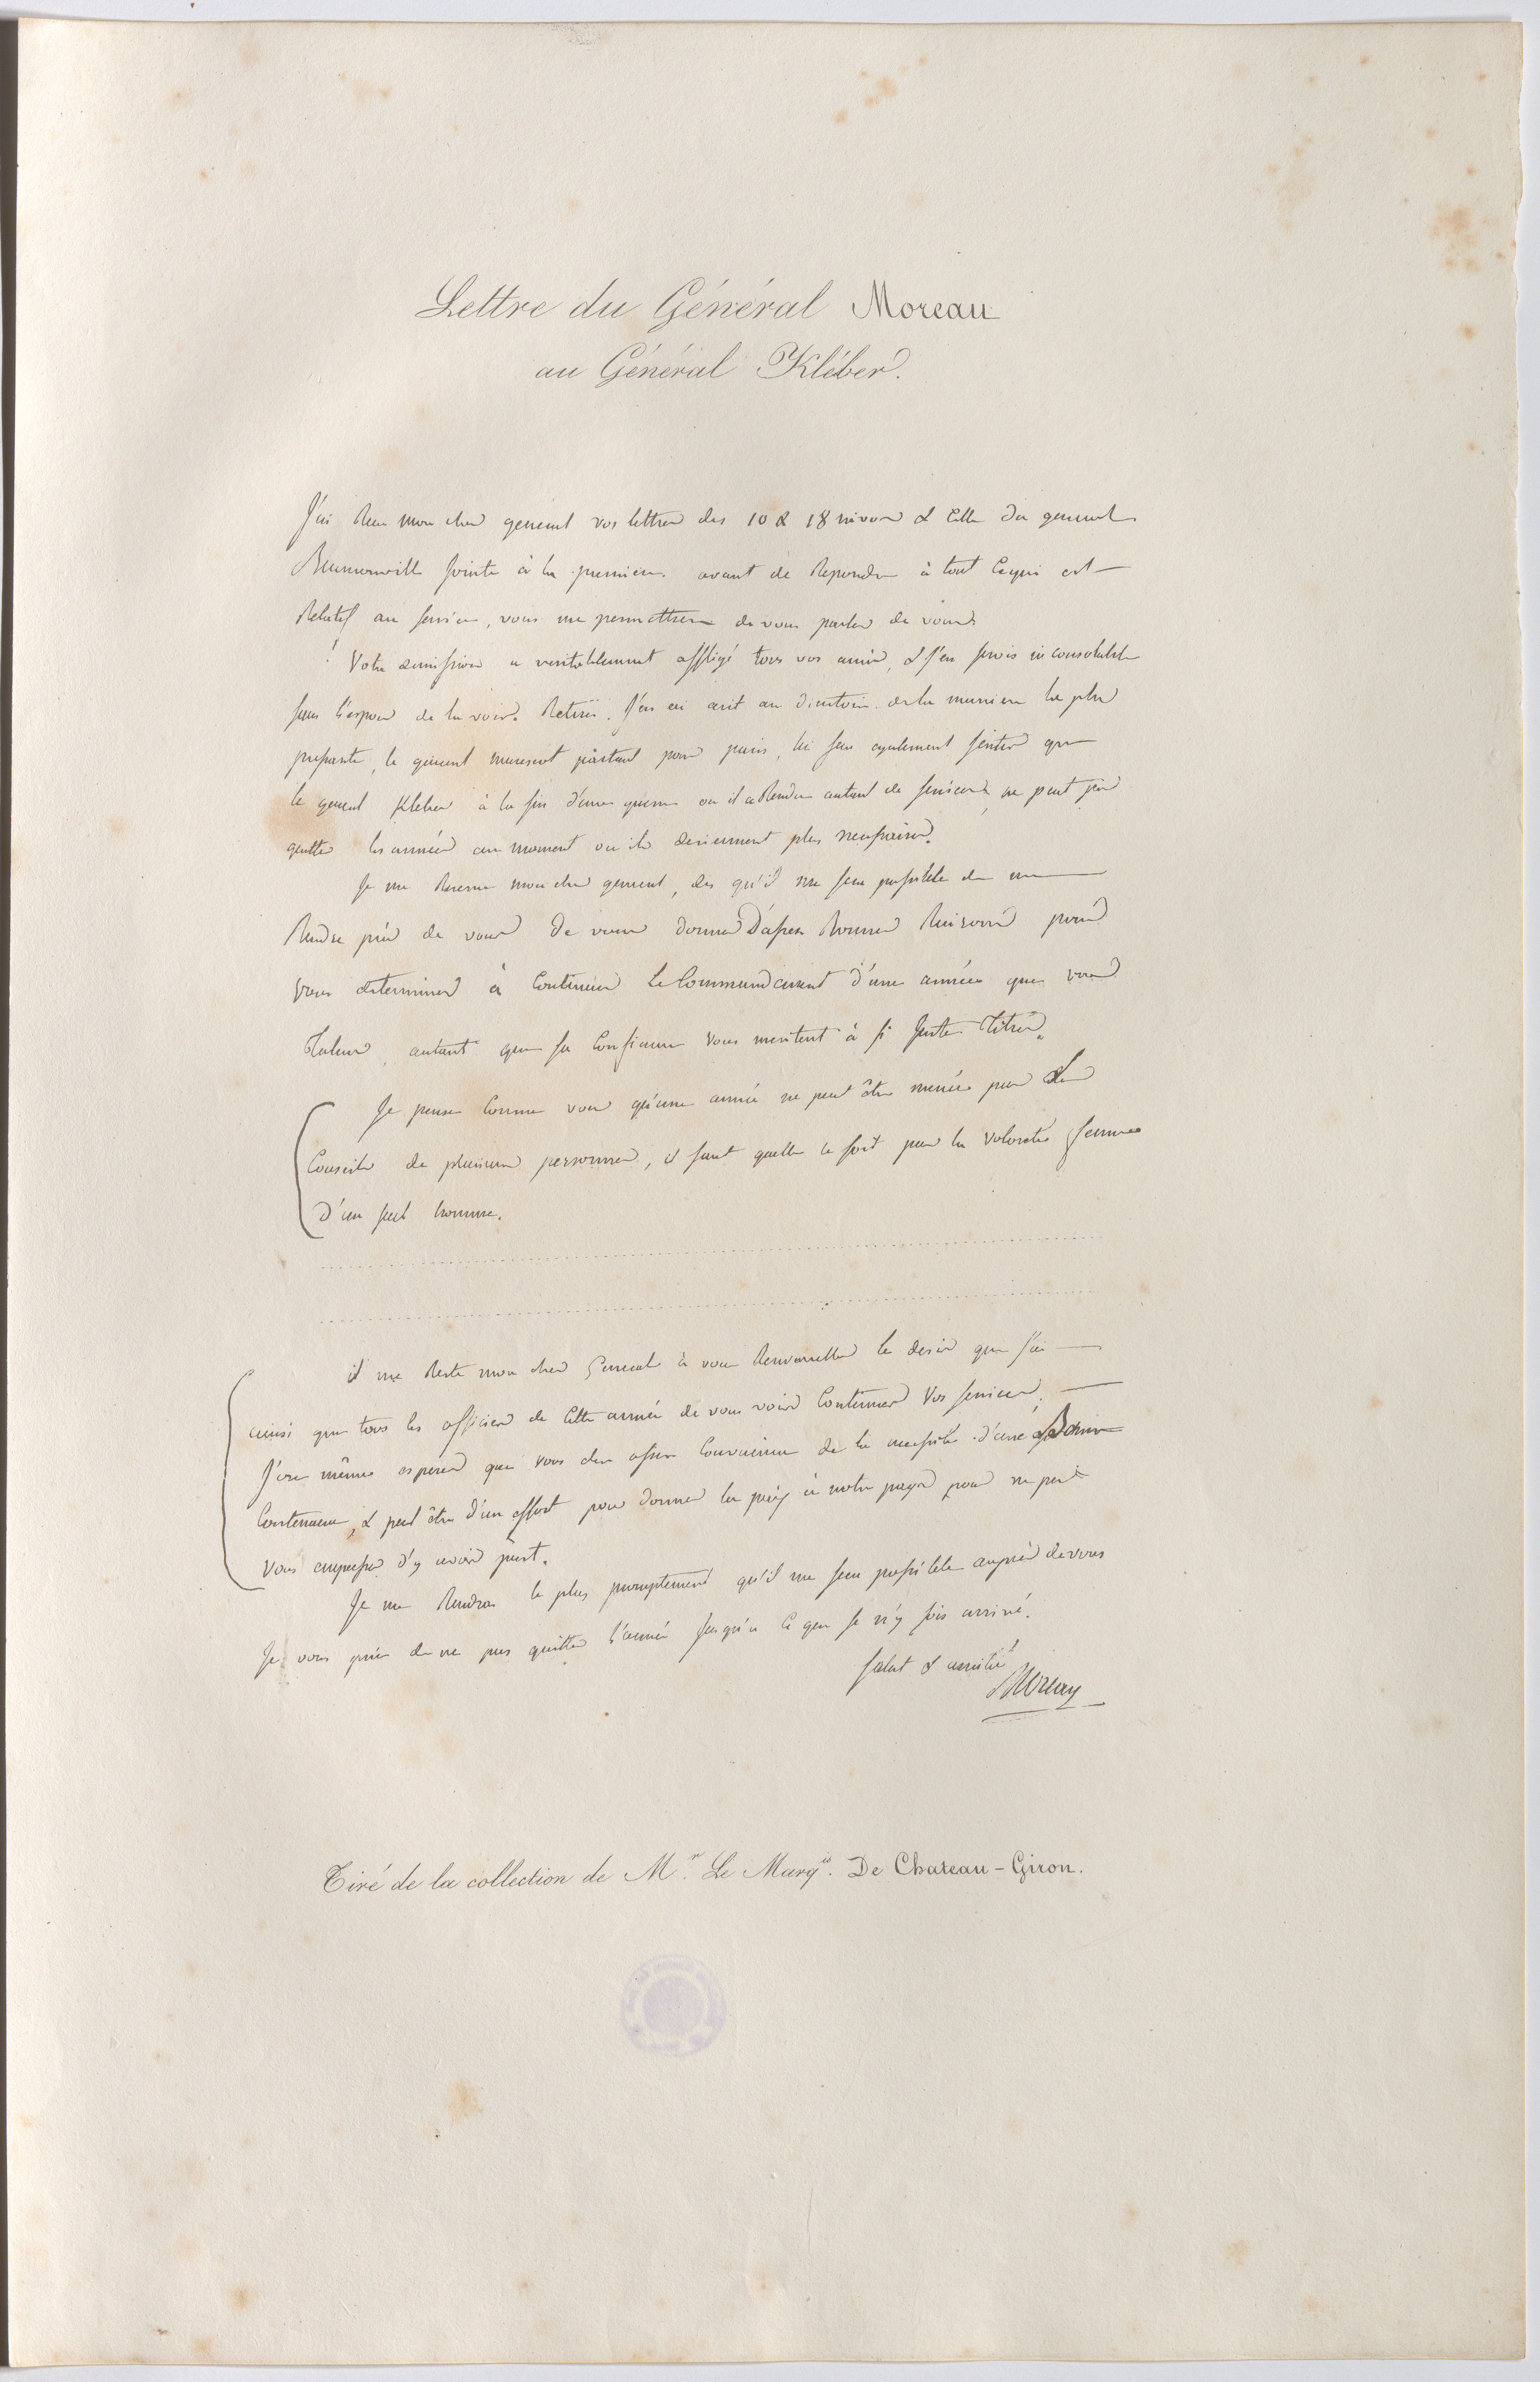 Lettre du Général Moreau
au Général Kléber.
J'ai Recu mon cher general vos lettres des 10 & 18 nivose & Celle du general
Beurnonville jointe à la premiere. avant de Repondre à tout Cequi est
Relatif au service, vous me permettrez de vous parler de vous.
Votre demission a veritablement affligé tous vos amis, & j'en serois inconsolable
sans l'espoir de la voir Retirée. J'en ai ecrit au directoire de la maniere la plus
pressante, le general marescot partant pour paris, lui fera egalement sentir que
le general Kleber à la fin d'une guerre ou il a Rendu autant de services ne peut pas
quitter les armées au moment ou ils deviennent plus necessaires.
Je me Reserve mon cher general, des qu'il me sera possible de me
Rendre près de vous de vous donner D'assez Bonnes Raisons pour
vous determiner à Continuer Le Commandement d'une armée que vos
Talens autant que sa Confiance vous meritent à si juste Titre.
Je pense Comme vous qu'une armée ne peut être menée par des
Conseils de plusieurs personnes, il faut quelle le soit par la volonté ferme
d'un seul homme.
il me Reste mon cher General à vous Renouveller le desir que j'ai
ainsi que tous les officiers de Cette armée de vous voir Continuer Vos services.
J'ose même esperer que vous etes assez Convaincu de la necessité d'une Bonne
Contenance, & peut être d'un effort pour donner la paix à notre pays pour ne pas
vous empresser d'y avoir part.
Je me Rendrai le plus promptement qu'il me sera possible auprès de vous
Je vous prie de ne pas quitter l'armée jusqu'à Ce que je n'y sois arrivé.
salut & amitié
Moreau
Tiré de la collection de M.r Le Marq.is De Chateau-Giron.